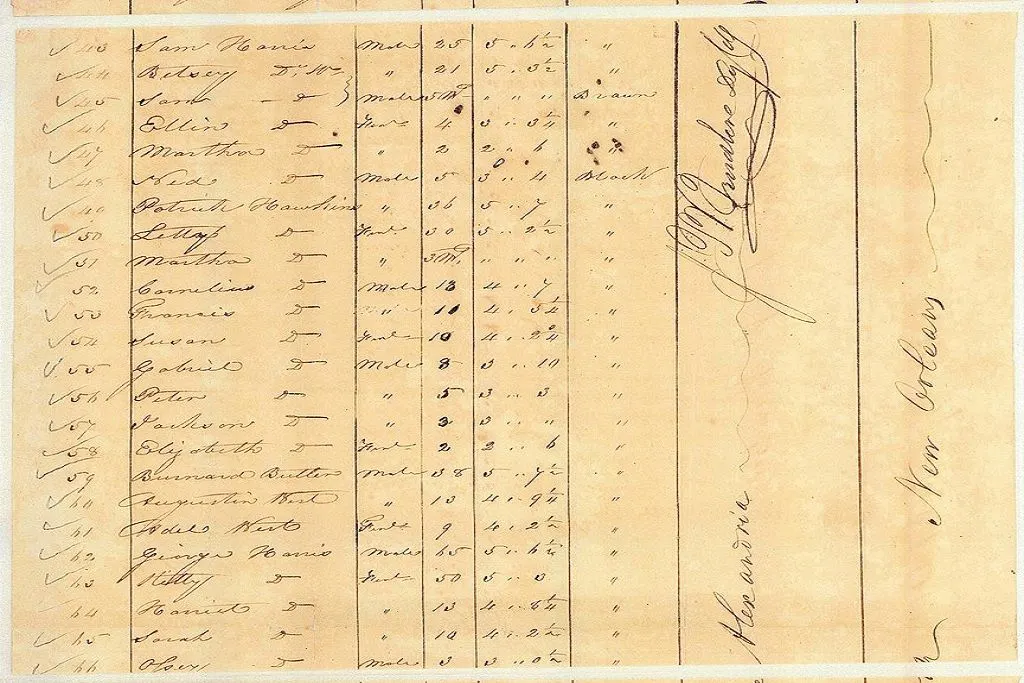 43 Sam Harris Male 25 5 " 6½ "
44 Betsey Do Wife " 21 5 " 3½ "
45 Sam Do Male 5 M " " " Brown
46 Ellin Do Feml 4 3 " 3¼ "
47 Martha Do " 2 2 " 6 "
48 Ned Do Male 5 3 " 4 Black
49 Patrick Hawkins " 36 5 " 7 "
50 Letty Do Feml 30 5 " 2½ "
51 Martha Do " 3 M " " " "
52 Cornelius Do Male 13 4 " 7 "
53 Francis Do " 11 4 " 5¼ "
54 Susan Do Feml 10 4 " 2¼ "
55 Gabriel Do Male 8 3 " 10 "
56 Peter Do " 5 3 " 3 "
57 Jackson Do " 3 3 " " "
58 Elizabeth Do Feml 2 2 " 6 "
59 Burnard Butler Male 38 5 " 7½ "
60 Augustin West " 13 4 " 9¼ "
61 Adel West Feml 9 4 " 2½ "
62 George Harris Male 65 5 " 6½ "
63 Kitty Do Feml 50 5 " 3 "
64 Harriet Do " 13 4 " 6¼ "
65 Sarah Do " 10 4 " 2½ "
66 Do Male 3 3 " 0½ "
Alexandria
New Orleans